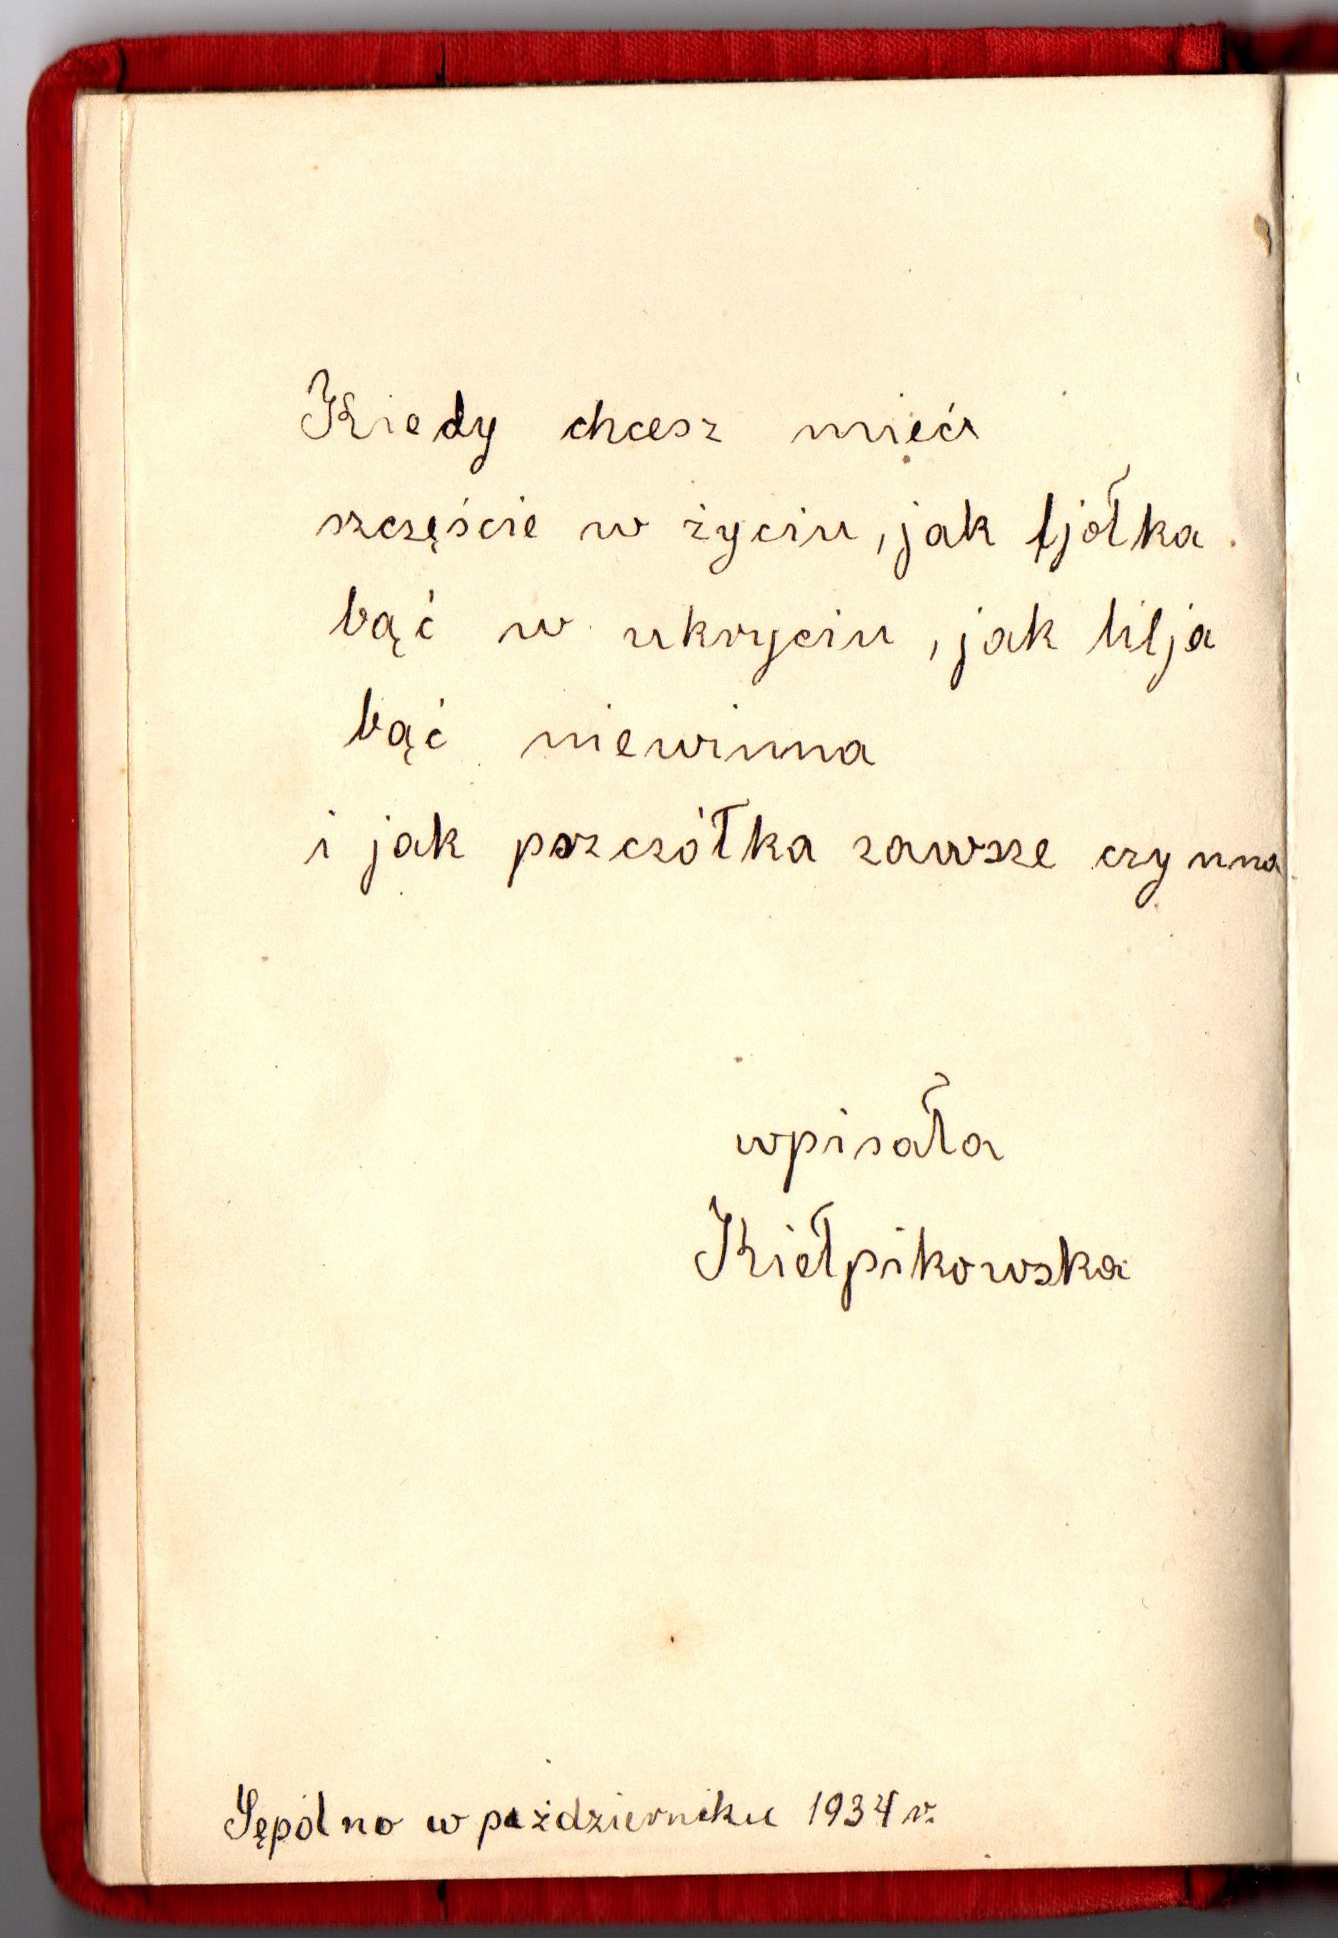 Kiedy chcesz mieć
szczęście w życiu, jak fjołka
bąć w ukryciu, jak lilja
bąć niewinna
i jak pszczółka zawsze czynna
wpisała
Kiełpikowska
Sępólno w październiku 1934 r.